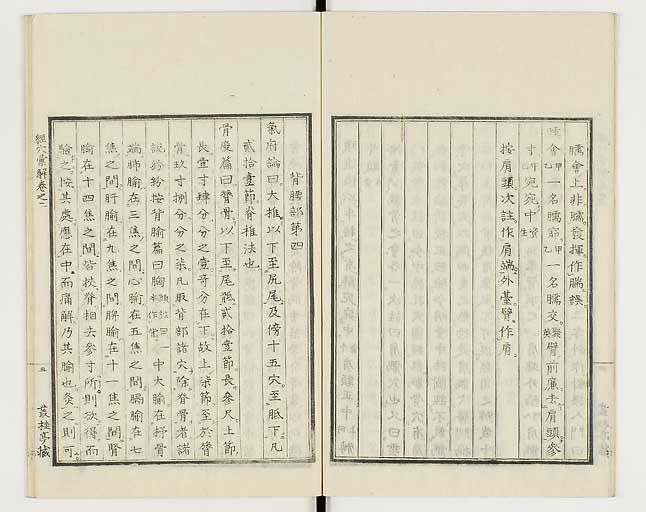 臑會上非臑發揮作腨誤
臑會甲乙一名臑窌甲乙一名臑交聚英臂前廉去肩頭參
寸宛宛中資生
按肩頭次註作肩端外臺臂作肩
背腰部第四
氣府論曰大椎以下至尻尾及傍十五穴至骶下凡
貳拾壹節脊椎法也
骨度篇曰膂骨以下至尾骶貳拾壹節長參尺上節
長壹寸肆分分之壹奇分在下故上柒節至於膂
骨玖寸捌分分之柒凡取背部諸穴除脊骨者諸
說紛紛按背腧篇曰胸中大腧在杼骨
端肺腧在三焦之間心腧在五焦之間膈腧在七
焦之間肝腧在九焦之間脾腧在十一焦之間腎
腧在十四焦之間皆挾脊相去參寸所則欲得而
驗之按其處應在中而痛解乃其腧也灸之則可
經穴彙解卷之二
五
叢桂亭藏